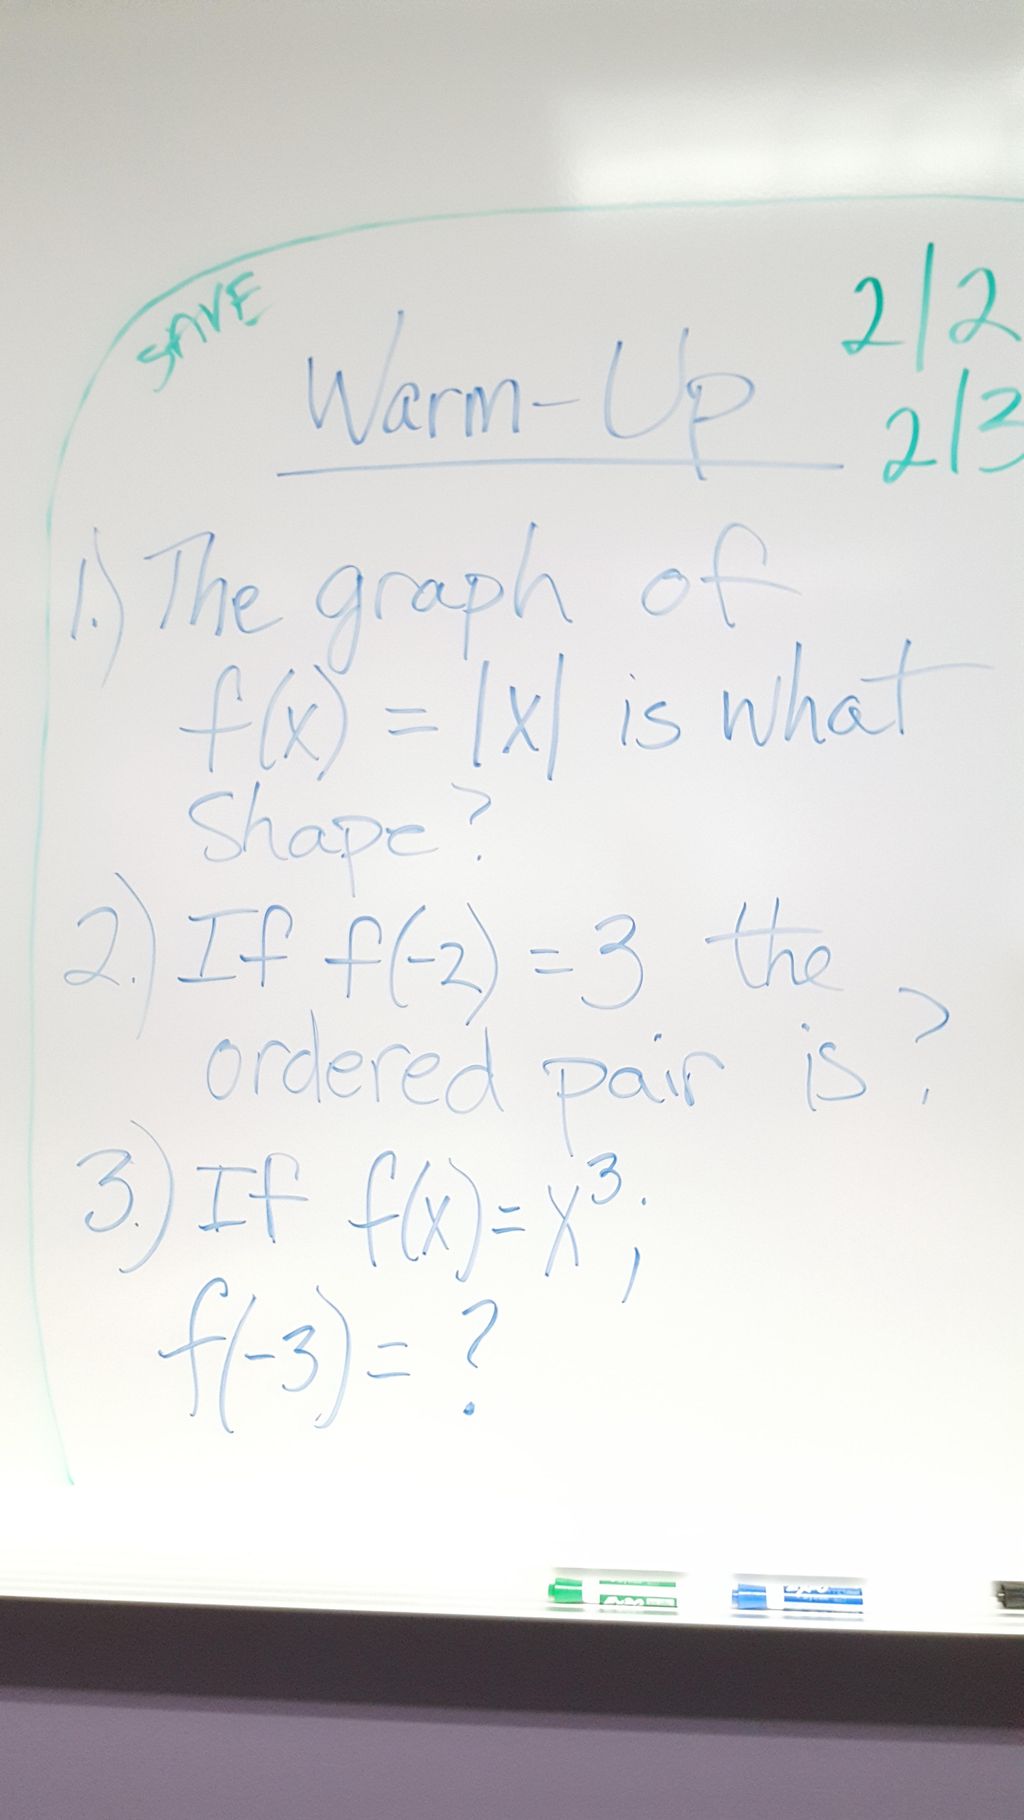 SAVE
2/2
Warm-Up
2/3
1.) The graph of
f(x) = |x| is what
shape?
2.) If f(-2) = 3 the
ordered pair is?
3.) If f(x) = x³;
f(-3) = ?
EXPO
EXPO